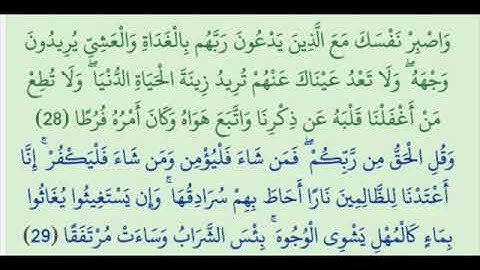 وَاصْبِرْ نَفْسَكَ مَعَ الَّذِينَ يَدْعُونَ رَبَّهُم بِالْغَدَاةِ وَالْعَشِيِّ يُرِيدُونَ
وَجْهَهُ ۖ وَلَا تَعْدُ عَيْنَاكَ عَنْهُمْ تُرِيدُ زِينَةَ الْحَيَاةِ الدُّنْيَا ۖ وَلَا تُطِعْ
مَنْ أَغْفَلْنَا قَلْبَهُ عَن ذِكْرِنَا وَاتَّبَعَ هَوَاهُ وَكَانَ أَمْرُهُ فُرُطًا (28)
وَقُلِ الْحَقُّ مِن رَّبِّكُمْ ۖ فَمَن شَاءَ فَلْيُؤْمِن وَمَن شَاءَ فَلْيَكْفُرْ ۚ إِنَّا
أَعْتَدْنَا لِلظَّالِمِينَ نَارًا أَحَاطَ بِهِمْ سُرَادِقُهَا ۚ وَإِن يَسْتَغِيثُوا يُغَاثُوا
بِمَاءٍ كَالْمُهْلِ يَشْوِي الْوُجُوهَ ۚ بِئْسَ الشَّرَابُ وَسَاءَتْ مُرْتَفَقًا (29)